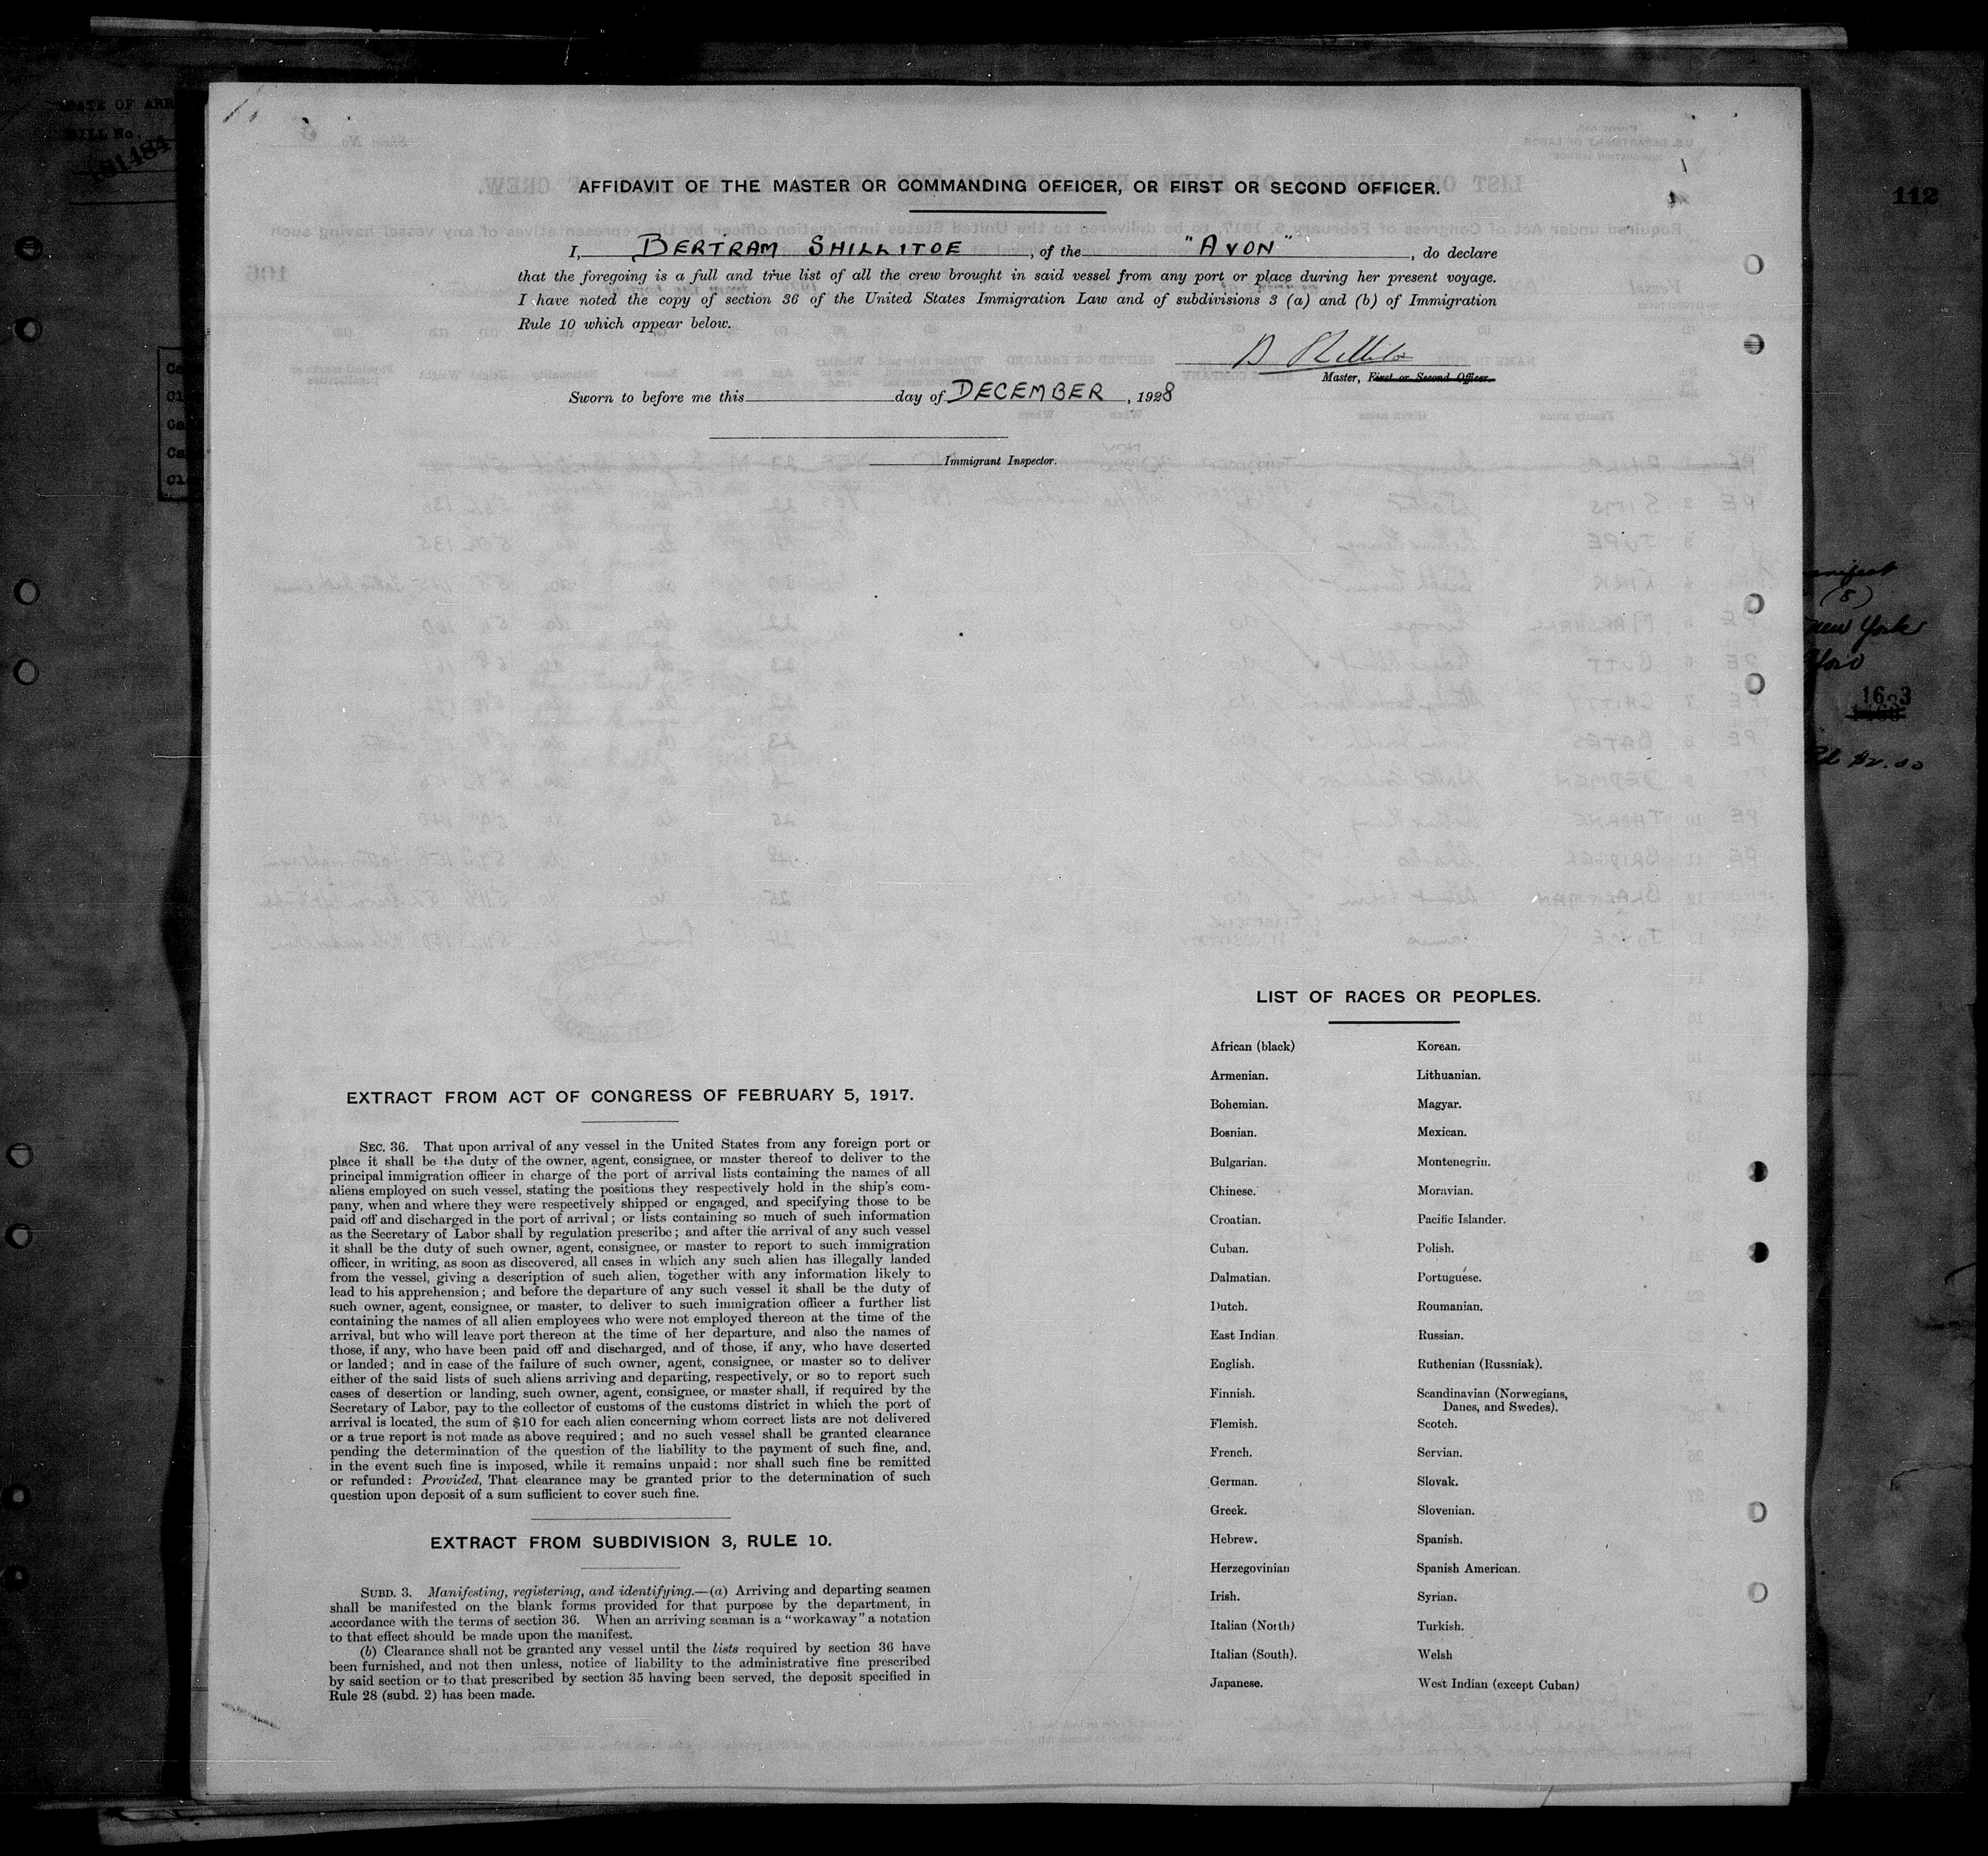 AFFIDAVIT OF THE MASTER OR COMMANDING OFFICER, OR FIRST OR SECOND OFFICER.
I, BERTRAM SHILLITOE, of the "AVON", do declare
that the foregoing is a full and true list of all the crew brought in said vessel from any port or place during her present voyage.
I have noted the copy of section 36 of the United States Immigration Law and of subdivisions 3 (a) and (b) of Immigration
Rule 10 which appear below.
B Shillitoe
Master, First or Second Officer.
Sworn to before me this day of DECEMBER, 1928
Immigrant Inspector.
EXTRACT FROM ACT OF CONGRESS OF FEBRUARY 5, 1917.
SEC. 36. That upon arrival of any vessel in the United States from any foreign port or
place it shall be the duty of the owner, agent, consignee, or master thereof to deliver to the
principal immigration officer in charge of the port of arrival lists containing the names of all
aliens employed on such vessel, stating the positions they respectively hold in the ship's com-
pany, when and where they were respectively shipped or engaged, and specifying those to be
paid off and discharged in the port of arrival; or lists containing so much of such information
as the Secretary of Labor shall by regulation prescribe; and after the arrival of any such vessel
it shall be the duty of such owner, agent, consignee, or master to report to such immigration
officer, in writing, as soon as discovered, all cases in which any such alien has illegally landed
from the vessel, giving a description of such alien, together with any information likely to
lead to his apprehension; and before the departure of any such vessel it shall be the duty of
such owner, agent, consignee, or master, to deliver to such immigration officer a further list
containing the names of all alien employees who were not employed thereon at the time of the
arrival, but who will leave port thereon at the time of her departure, and also the names of
those, if any, who have been paid off and discharged, and of those, if any, who have deserted
or landed; and in case of the failure of such owner, agent, consignee, or master so to deliver
either of the said lists of such aliens arriving and departing, respectively, or so to report such
cases of desertion or landing, such owner, agent, consignee, or master shall, if required by the
Secretary of Labor, pay to the collector of customs of the customs district in which the port of
arrival is located, the sum of $10 for each alien concerning whom correct lists are not delivered
or a true report is not made as above required; and no such vessel shall be granted clearance
pending the determination of the question of the liability to the payment of such fine, and,
in the event such fine is imposed, while it remains unpaid; nor shall such fine be remitted
or refunded: Provided, That clearance may be granted prior to the determination of such
question upon deposit of a sum sufficient to cover such fine.
EXTRACT FROM SUBDIVISION 3, RULE 10.
SUBD. 3. Manifesting, registering, and identifying.—(a) Arriving and departing seamen
shall be manifested on the blank forms provided for that purpose by the department, in
accordance with the terms of section 36. When an arriving seaman is a "workaway" a notation
to that effect should be made upon the manifest.
(b) Clearance shall not be granted any vessel until the lists required by section 36 have
been furnished, and not then unless, notice of liability to the administrative fine prescribed
by said section or to that prescribed by section 35 having been served, the deposit specified in
Rule 28 (subd. 2) has been made.
LIST OF RACES OR PEOPLES.
African (black) Korean.
Armenian. Lithuanian.
Bohemian. Magyar.
Bosnian. Mexican.
Bulgarian. Montenegrin.
Chinese. Moravian.
Croatian. Pacific Islander.
Cuban. Polish.
Dalmatian. Portuguese.
Dutch. Roumanian.
East Indian Russian.
English. Ruthenian (Russniak).
Finnish. Scandinavian (Norwegians,
Danes, and Swedes).
Flemish. Scotch.
French. Servian.
German. Slovak.
Greek. Slovenian.
Hebrew. Spanish.
Herzegovinian Spanish American.
Irish. Syrian.
Italian (North) Turkish.
Italian (South). Welsh
Japanese. West Indian (except Cuban)
DATE OF ARR
BILL No.
112
(8)
New York
1603